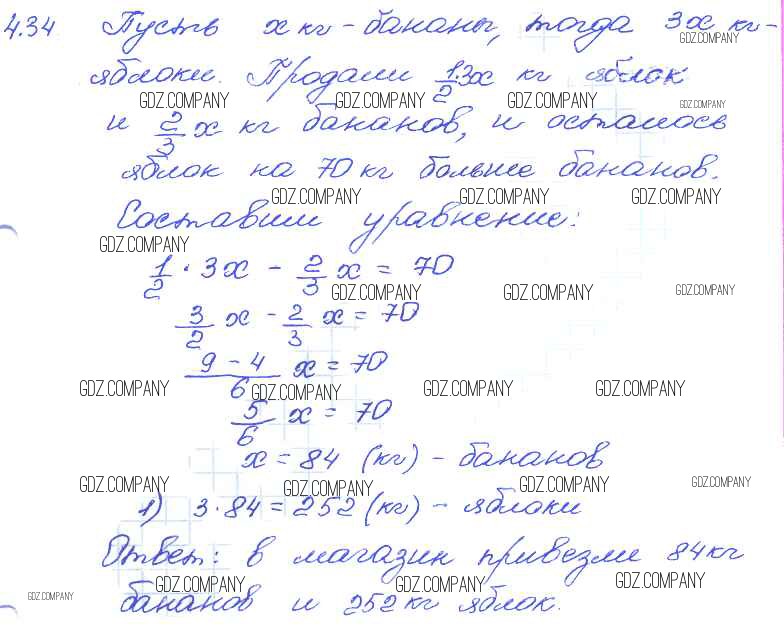 4.34 Пусть x кг - бананы, тогда 3x кг -
GDZ.COMPANY
яблоки. Продали 1/2·3x кг яблок
GDZ.COMPANY GDZ.COMPANY GDZ.COMPANY GDZ.COMPANY
и 2/3 x кг бананов, и осталось
яблок на 70 кг больше бананов.
GDZ.COMPANY GDZ.COMPANY GDZ.COMPANY
Составим уравнение:
GDZ.COMPANY
1/2 · 3x - 2/3 x = 70
GDZ.COMPANY GDZ.COMPANY GDZ.COMPANY
3/2 x - 2/3 x = 70
9-4/6 x = 70
GDZ.COMPANY GDZ.COMPANY GDZ.COMPANY GDZ.COMPANY
5/6 x = 70
x = 84 (кг) - бананов
GDZ.COMPANY GDZ.COMPANY GDZ.COMPANY GDZ.COMPANY
1) 3·84 = 252 (кг) - яблоки
Ответ: в магазин привезли 84 кг
GDZ.COMPANY GDZ.COMPANY GDZ.COMPANY
бананов и 252 кг яблок.
GDZ.COMPANY